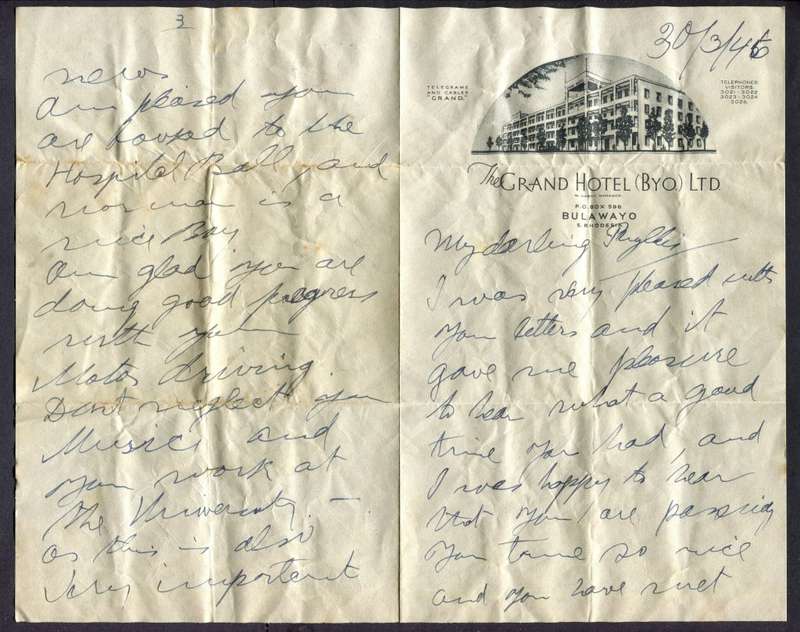 3
news
Am pleased you
are booked to the
Hospital Ball, and
Norman is a
nice Boy
Am glad you are
doing good progress
with your
Motor driving.
Dont neglect your
Music, and
your work at
the University. –
as this is also
very important
30/3/46
TELEGRAMS
AND CABLES
"GRAND."
TELEPHONES
VISITORS
3021-3022
3023-3024
3026.
The GRAND HOTEL (BYO.) LTD
P.O. BOX 596
BULAWAYO
S. RHODESIA
My darling Phyllis
I was very pleased with
your letters and it
gave me pleasure
to hear what a good
time you had, and
I was happy to hear
that you are passing
your time so nice
and you have met